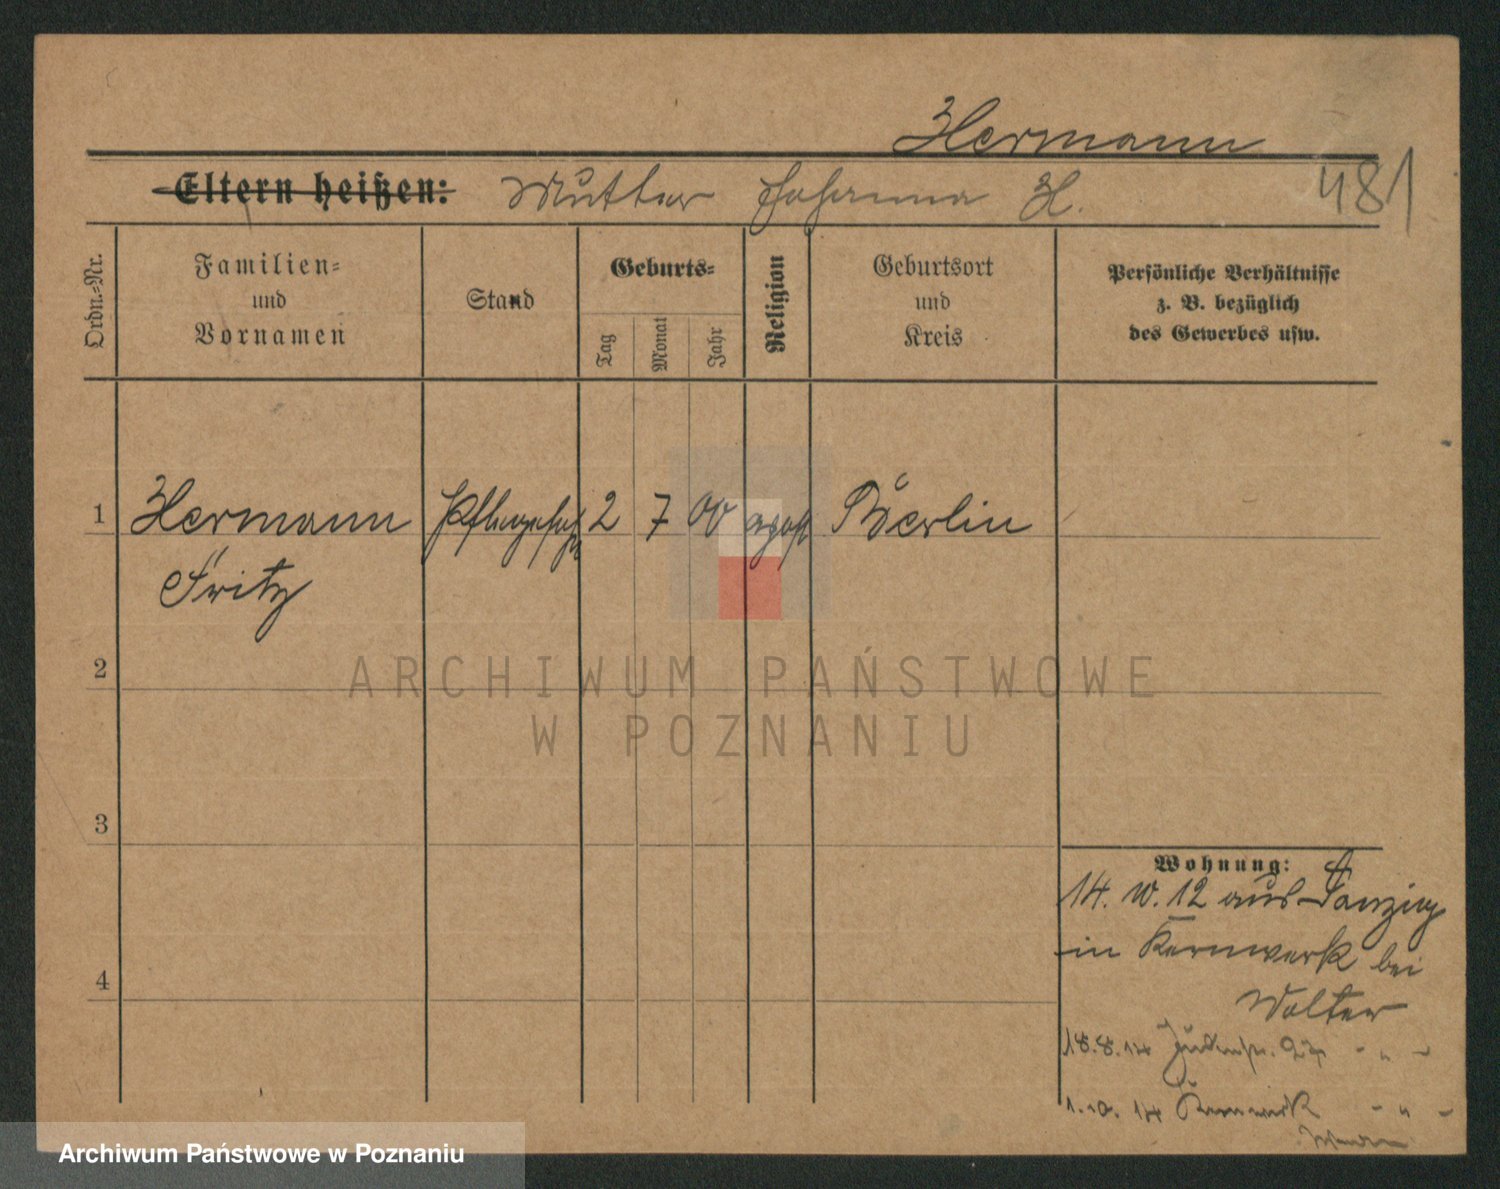 Hermann
Eltern heißen: Mutter Johanna H.
481
Ordn.-Nr.
Familien-
und
Vornamen
Stand
Geburts-
Tag
Monat
Jahr
Religion
Geburtsort
und
Kreis
Persönliche Verhältnisse
z. B. bezüglich
des Gewerbes usw.
1 Hermann 2 7 00 Berlin
Fritz
2
3
4
ARCHIWUM PAŃSTWOWE
W POZNANIU
Wohnung:
14. IV. 12 aus Danzig
in Kernwerk bei
Wolter
18.8.14 Judenstr. 27 - " -
1.10.14 Kernwerk - " -
Archiwum Państwowe w Poznaniu